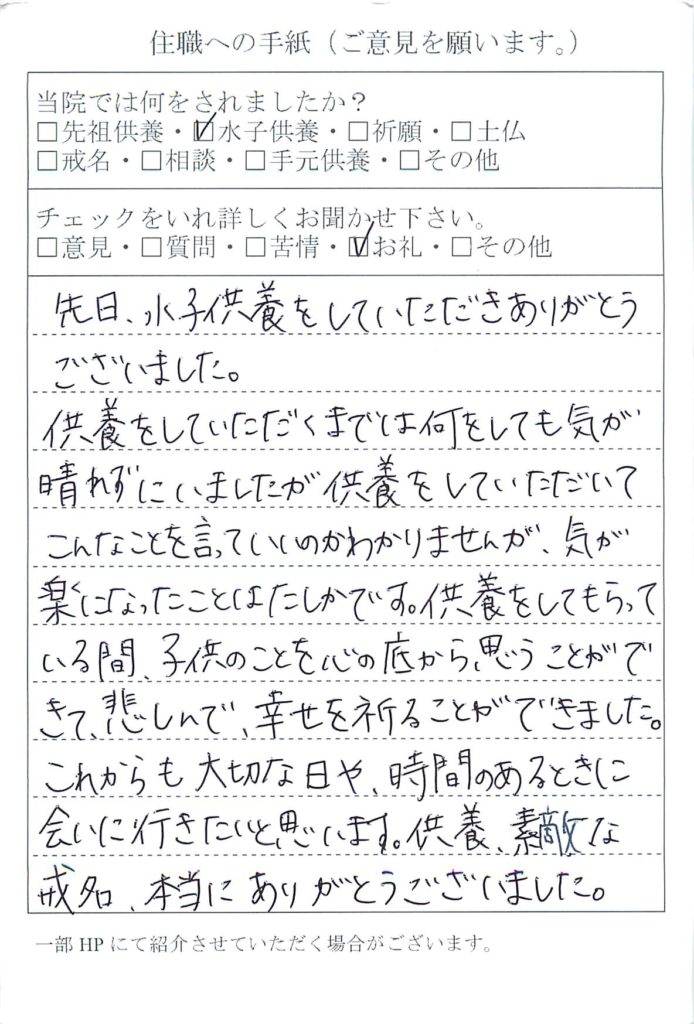 住職への手紙（ご意見を願います。）
当院では何をされましたか？
□先祖供養・☑水子供養・□祈願・□土仏
□戒名・□相談・□手元供養・□その他
チェックをいれ詳しくお聞かせ下さい。
□意見・□質問・□苦情・☑お礼・□その他
先日、水子供養をしていただきありがとう
ございました。
供養をしていただくまでは何をしても気が
晴れずにいましたが供養をしていただいて
こんなことを言っていいのかわかりませんが、気が
楽になったことはたしかです。供養をしてもらって
いる間、子供のことを心の底から思うことがで
きて、悲しんで、幸せを祈ることができました。
これからも大切な日や、時間のあるときに
会いに行きたいと思います。供養、素敵な
戒名、本当にありがとうございました。
一部HPにて紹介させていただく場合がございます。